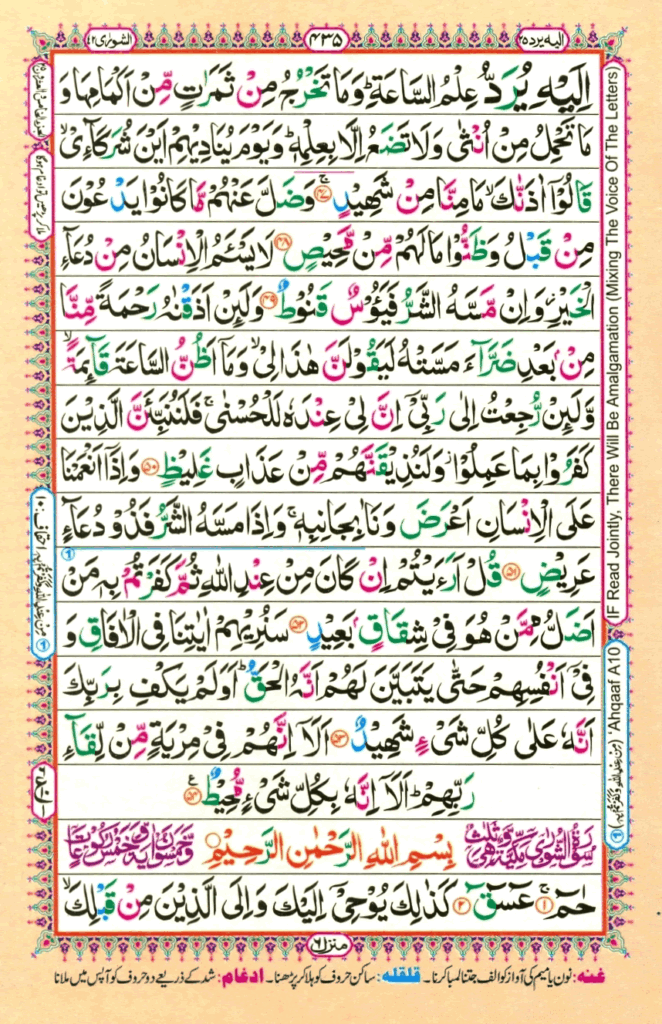 الشورٰی ۴۲
۴۳۵
الیہ یرد ۲۵
اِلَیْهِ یُرَدُّ عِلْمُ السَّاعَةِ ؕ وَمَا تَخْرُجُ مِنْ ثَمَرٰتٍ مِّنْ اَكْمَامِهَا وَ
مَا تَحْمِلُ مِنْ اُنْثٰی وَلَا تَضَعُ اِلَّا بِعِلْمِهٖ ؕ وَیَوْمَ یُنَادِیْهِمْ اَیْنَ شُرَكَآءِیْ ۙ
قَالُوْۤا اٰذَنّٰكَ ۙ مَا مِنَّا مِنْ شَهِیْدٍ ۚ ﴿۴۷﴾ وَضَلَّ عَنْهُمْ مَّا كَانُوْا یَدْعُوْنَ
مِنْ قَبْلُ وَظَنُّوْا مَا لَهُمْ مِّنْ مَّحِیْصٍ ﴿۴۸﴾ لَا یَسْـَٔمُ الْاِنْسَانُ مِنْ دُعَآءِ
الْخَیْرِ ؗ وَاِنْ مَّسَّهُ الشَّرُّ فَیَـُٔوْسٌ قَنُوْطٌ ﴿۴۹﴾ وَلَىِٕنْ اَذَقْنٰهُ رَحْمَةً مِّنَّا
مِنْۢ بَعْدِ ضَرَّآءَ مَسَّتْهُ لَیَقُوْلَنَّ هٰذَا لِیْ ۙ وَمَاۤ اَظُنُّ السَّاعَةَ قَآىِٕمَةً ۙ
وَّلَىِٕنْ رُّجِعْتُ اِلٰی رَبِّیْۤ اِنَّ لِیْ عِنْدَهٗ لَلْحُسْنٰی ۚ فَلَنُنَبِّئَنَّ الَّذِیْنَ
كَفَرُوْا بِمَا عَمِلُوْا ؗ وَلَنُذِیْقَنَّهُمْ مِّنْ عَذَابٍ غَلِیْظٍ ﴿۵۰﴾ وَاِذَاۤ اَنْعَمْنَا
عَلَی الْاِنْسَانِ اَعْرَضَ وَنَاٰ بِجَانِبِهٖ ۚ وَاِذَا مَسَّهُ الشَّرُّ فَذُوْ دُعَآءٍ
عَرِیْضٍ ﴿۵۱﴾ قُلْ اَرَءَیْتُمْ اِنْ كَانَ مِنْ عِنْدِ اللّٰهِ ثُمَّ كَفَرْتُمْ بِهٖ مَنْ
اَضَلُّ مِمَّنْ هُوَ فِیْ شِقَاقٍۭ بَعِیْدٍ ﴿۵۲﴾ سَنُرِیْهِمْ اٰیٰتِنَا فِی الْاٰفَاقِ وَ
فِیْۤ اَنْفُسِهِمْ حَتّٰی یَتَبَیَّنَ لَهُمْ اَنَّهُ الْحَقُّ ؕ اَوَلَمْ یَكْفِ بِرَبِّكَ
اَنَّهٗ عَلٰی كُلِّ شَیْءٍ شَهِیْدٌ ﴿۵۳﴾ اَلَاۤ اِنَّهُمْ فِیْ مِرْیَةٍ مِّنْ لِّقَآءِ
رَبِّهِمْ ؕ اَلَاۤ اِنَّهٗ بِكُلِّ شَیْءٍ مُّحِیْطٌ ﴿۵۴﴾
بِسْمِ اللّٰهِ الرَّحْمٰنِ الرَّحِیْمِ
حٰمٓ ۚ ﴿۱﴾ عٓسٓقٓ ﴿۲﴾ كَذٰلِكَ یُوْحِیْۤ اِلَیْكَ وَاِلَی الَّذِیْنَ مِنْ قَبْلِكَ ۙ
منزل ۶
غنه: نون یا میم کی آواز کو الف جتنا لمبا کرنا۔ قلقله: ساکن حروف کو ہلا کر پڑھنا۔ ادغام: شد کے ذریعے دو حروف کو آپس میں ملانا
IF Read Jointly, There Will Be Amalgamation (Mixing The Voice Of The Letters)
'Ahqaaf A10